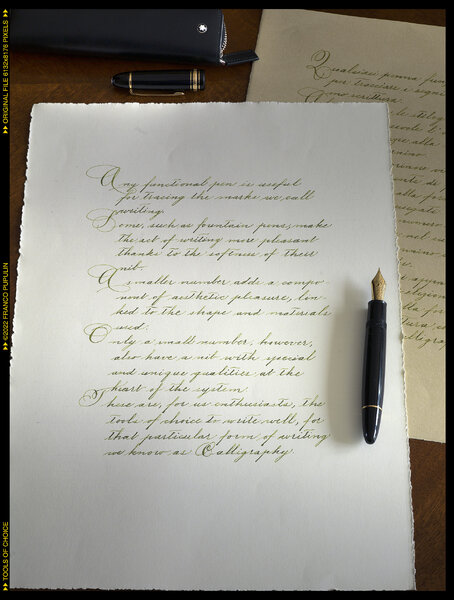 Any functional pen is useful
for tracing the marks we call
writing.
Some, such as fountain pens, make
the act of writing more pleasant
thanks to the softness of their
nib.
A smaller number adds a compo-
nent of aesthetic pleasure, lin-
ked to the shape and materials
used.
Only a small number, however,
also have a nib with special
and unique qualities at the
heart of the system.
These are, for us enthusiasts, the
tools of choice to write well, for
that particular form of writing
we know as Calligraphy.
Qualsiasi penna fun
per tracciare i segni
scrittura.
le stilog
alla
alla
TOOLS OF CHOICE
©2022 FRANCO PUPULIN
ORIGINAL FILE 6132x8176 PIXELS